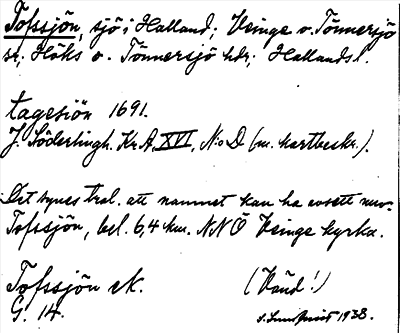 Tofssjön, sjö i Halland; Veinge o. Tönnersjö
sr; Höks o. Tönnersjö hdr; Hallands l.
tagesiön 1691.
J. Söderlingh. Kr.A. XVI, N:o D (m. kartbeskr.).
Det synes trol. att namnet kan ha avsett nuv.
Tofssjön, bel. 6,4 km. NNÖ Veinge kyrka.
Tofssjön ek. (Känd!)
G. 14. S. Lundquist 1938.